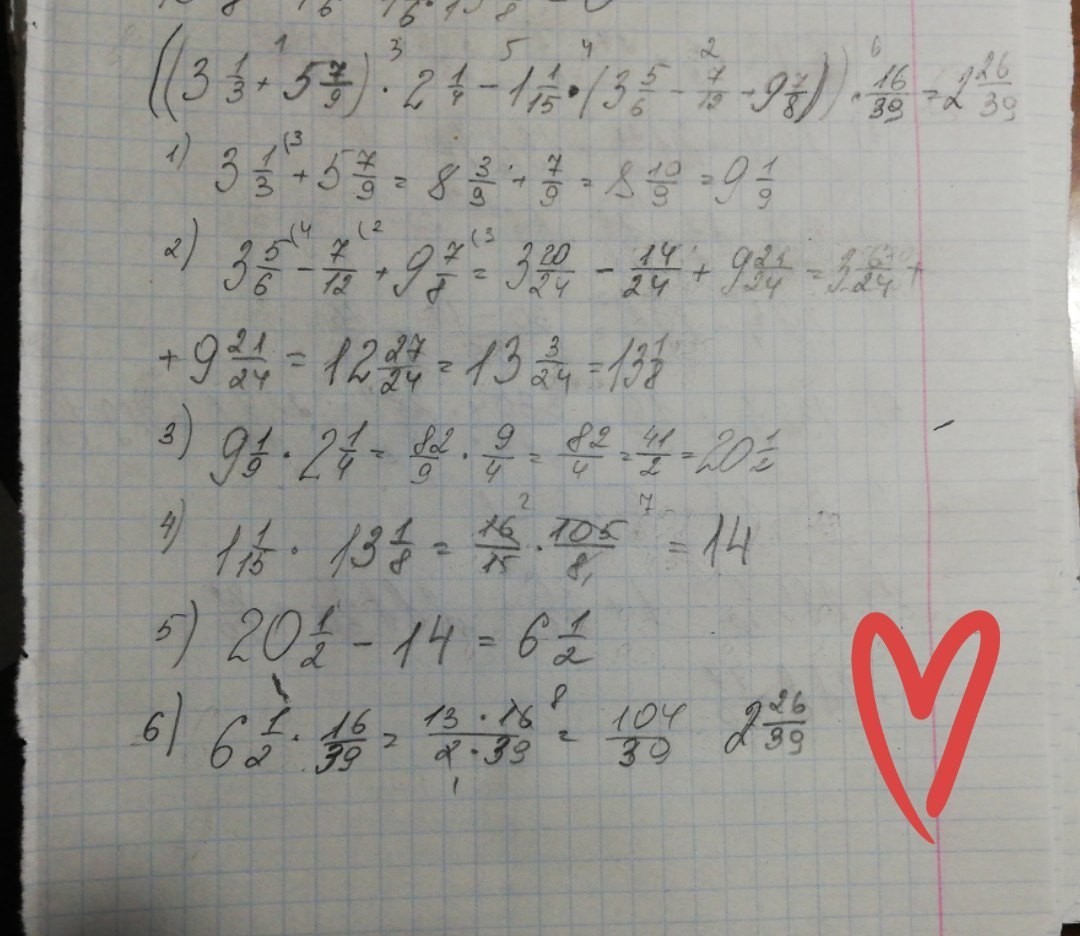 ((3 1/3 + 5 7/9) · 2 1/4 - 1 1/15 · (3 5/6 - 7/12 + 9 7/8)) · 16/39 = 2 26/39
1) 3 1/3 (3 + 5 7/9 = 8 3/9 + 7/9 = 8 10/9 = 9 1/9
2) 3 5/6 (4 - 7/12 (2 + 9 7/8 (3 = 3 20/24 - 14/24 + 9 21/24 = 3 6/24 +
+ 9 21/24 = 12 27/24 = 13 3/24 = 13 1/8
3) 9 1/9 · 2 1/4 = 82/9 · 9/4 = 82/4 = 41/2 = 20 1/2
4) 1 1/15 · 13 1/8 = 16/15 2 · 105/8 7 = 14
5) 20 1/2 - 14 = 6 1/2
6) 6 1/2 · 16/39 = 13 · 16 8/2 · 39 = 104/39 2 26/39